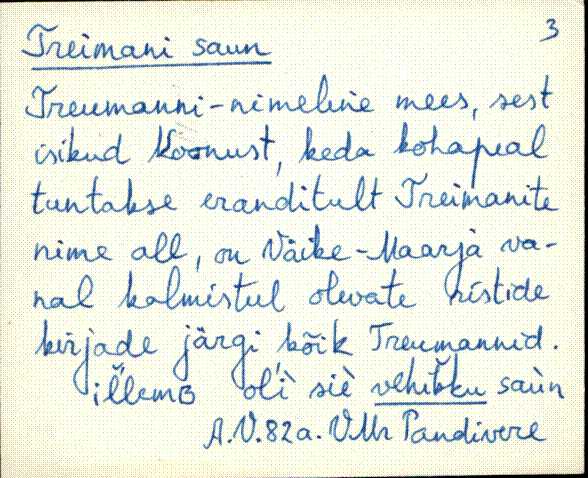 3
Treimani saun
Treumanni-nimeline mees, sest
isikud Koonust, keda kohapeal
tuntakse eranditult Treimanite
nime all, on Väike-Maarja va-
nal kalmistul olevate ristide
kirjade järgi kõik Treumannid.
oĺì siè vehiḱku saùn
A.V. 82 a. VMr Pandivere